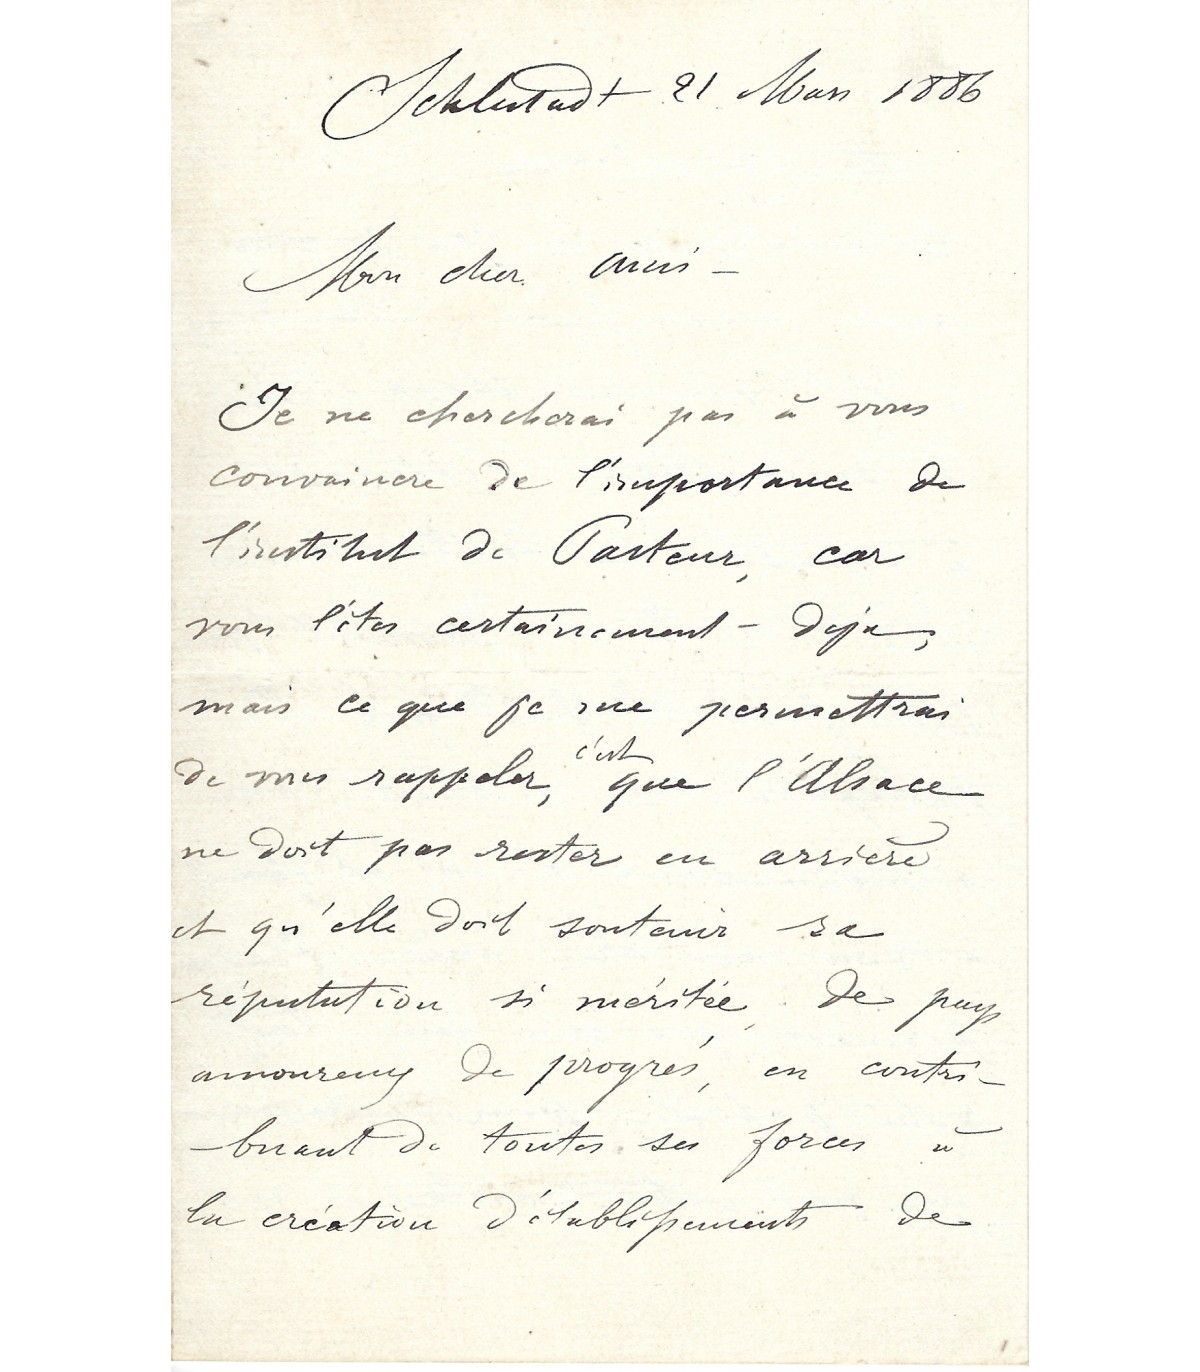 Schlestadt 21 Mars 1886
Mon cher Amis –
Je ne chercherai pas à vous
convaincre de l'importance de
l'institut de Pasteur, car
vous l'êtes certainement – deja,
mais ce que je me permettrai
de vous rappeler, c'est que l'Alsace
ne doit pas rester en arrière
et qu'elle doit soutenir sa
réputation si méritée, de pays
amoureux de progrés, en contri-
-buant de toutes ses forces à
la création d'établissements de